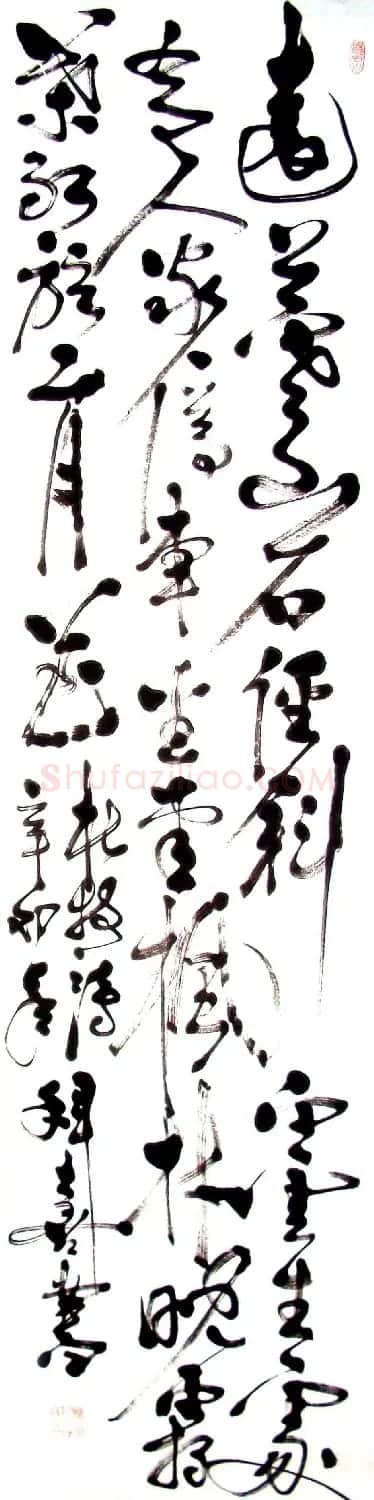 遠上寒山石徑斜白雲生處
有人家停車坐愛楓林晚霜
葉紅於二月花
杜牧詩
辛卯年
Shufaziliao.COM